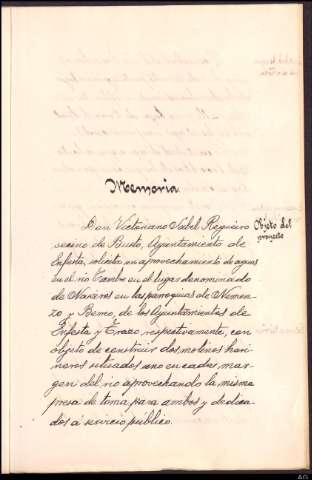 Memoria
Objeto del
proyecto
Don Victoriano Isabel Regueiro
vecino de Buslo, Ayuntamiento de
Enfesta, solicita un aprovechamiento de aguas
en el rio Tambre en el lugar denominado
de Navares en las parroquias de Nemen-
zo y Berreo, de los Ayuntamientos de
Enfesta y Trazo respectivamente, con
objeto de construir dos molinos hari-
neros situados uno en cada mar-
gen del rio aprovechando la misma
presa de toma para ambos y dedica-
dos á servicio público.